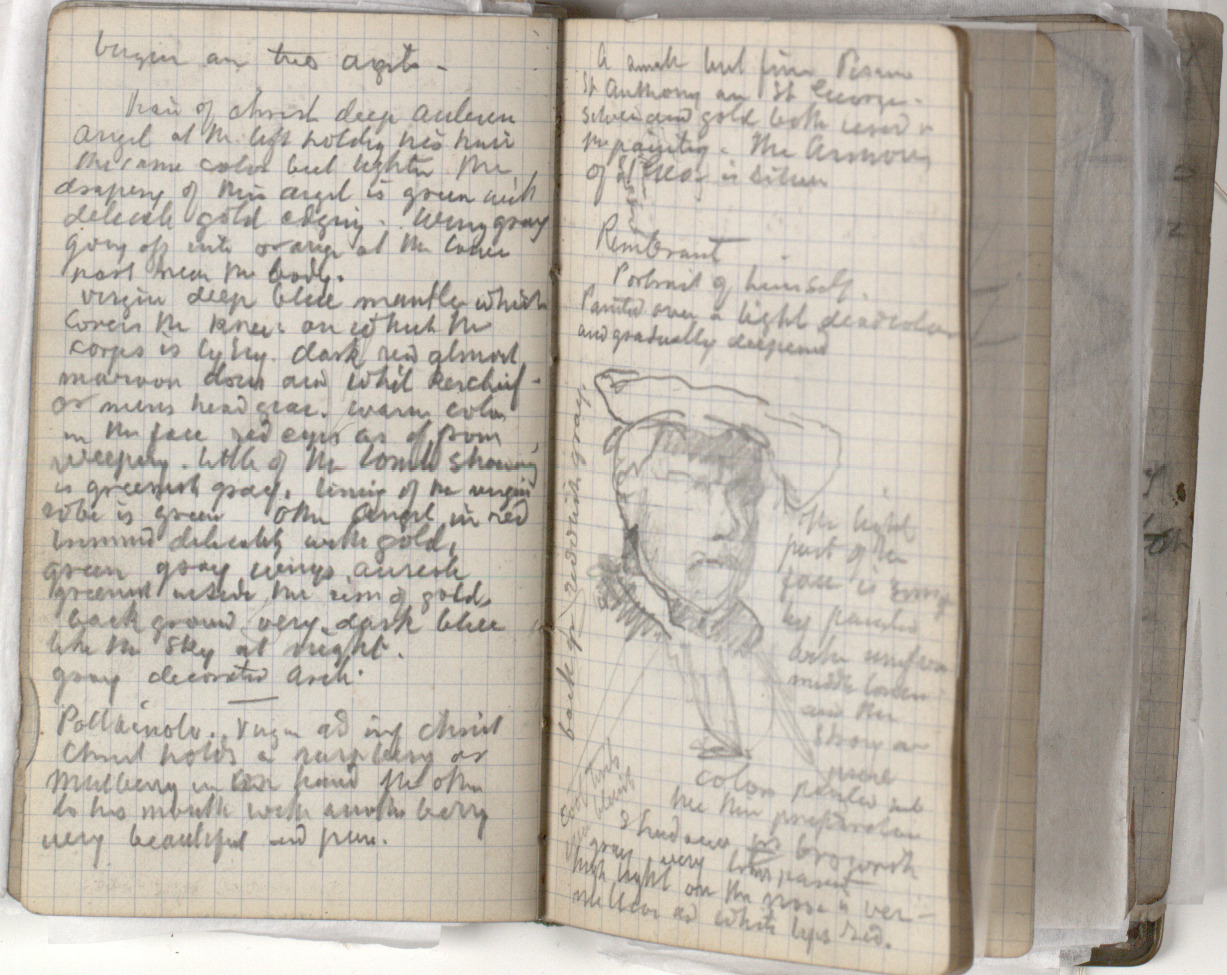 Virgin and two angels -
Hair of Christ deep auburn
angel at the left holding his hair
the same color but lighter the
drapery of this angel is green with
delicate gold edging. Wing gray
going off into orange at the
part near the body.
virgin deep blue mantle which
covers the knees on which the
corps is lying. dark red almost
maroon down and whit kerchief
or nuns head gear. warm color
in the face red eyes as of from
weeping. little of the tomb showing
is greenish gray. lining of the virgin
robe is green other angel in red
trimmed delicately with gold,
green gray wings.
greenish inside the rim of gold.
back ground very dark blue
like the sky at night.
gray decorated arch.
Pollainolo. Virgin ad ing Christ
Christ holds a raspberry or
mulberry in hand the other
to his mouth with another berry
very beautiful and pure.
A small but fine Pisano
St Anthony and St George.
silver and gold both used in
the painting. The Armour
of St Geo. is silver
Rembrant
Portrait of himself.
Painted over a light deadcolour
and gradually deepened
back gr reddish gray
The light
part of the
face is
by painted
with uniform
middle tones
and the
strong and
pure
colors painted
the thin preparation
shadows brownish
gray very
high light on the nose is ver-
million and white lips red.